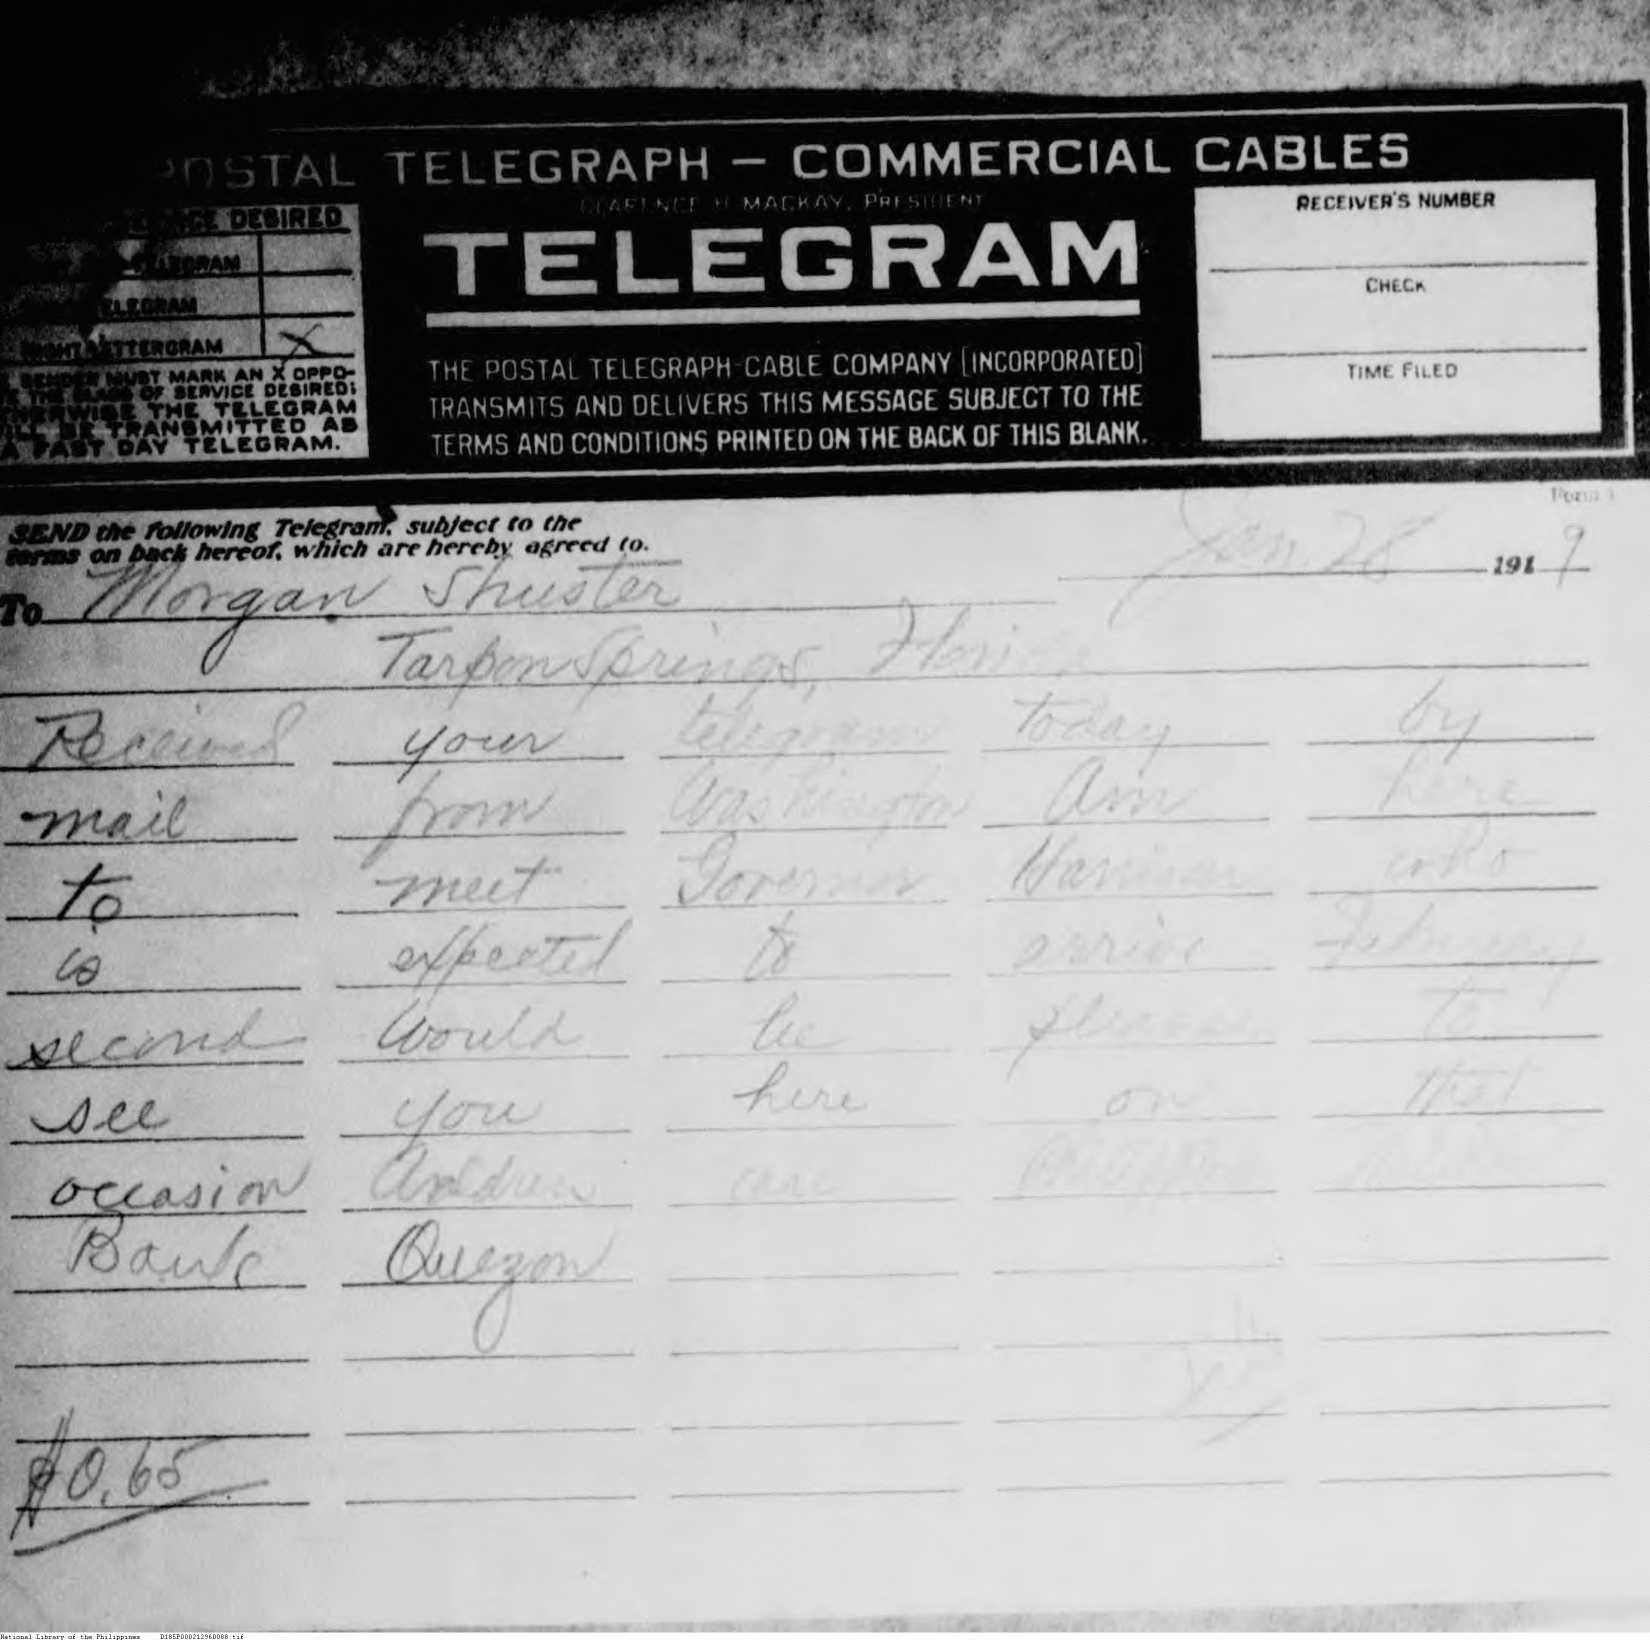 POSTAL TELEGRAPH — COMMERCIAL CABLES
CLARENCE H. MACKAY, PRESIDENT
DESIRED
TELEGRAM
TELEGRAM
NIGHT LETTERGRAM X
SENDER MUST MARK AN X OPPO-
THE CLASS OF SERVICE DESIRED;
OTHERWISE THE TELEGRAM
WILL BE TRANSMITTED AS
A FAST DAY TELEGRAM.
TELEGRAM
THE POSTAL TELEGRAPH-CABLE COMPANY [INCORPORATED]
TRANSMITS AND DELIVERS THIS MESSAGE SUBJECT TO THE
TERMS AND CONDITIONS PRINTED ON THE BACK OF THIS BLANK.
RECEIVER'S NUMBER
CHECK
TIME FILED
Form
SEND the following Telegram, subject to the
terms on back hereof, which are hereby agreed to.
Jan. 28 1919
To Morgan Shuster
Tarpon Springs, Florida
Received your telegram today by
mail from Washington Am here
to meet Governor Harrison who
is expected to arrive February
second Would be please to
see you here on that
occasion Anddress care
Bank Quezon
$0.65
National Library of the Philippines D185P000212960088.tif